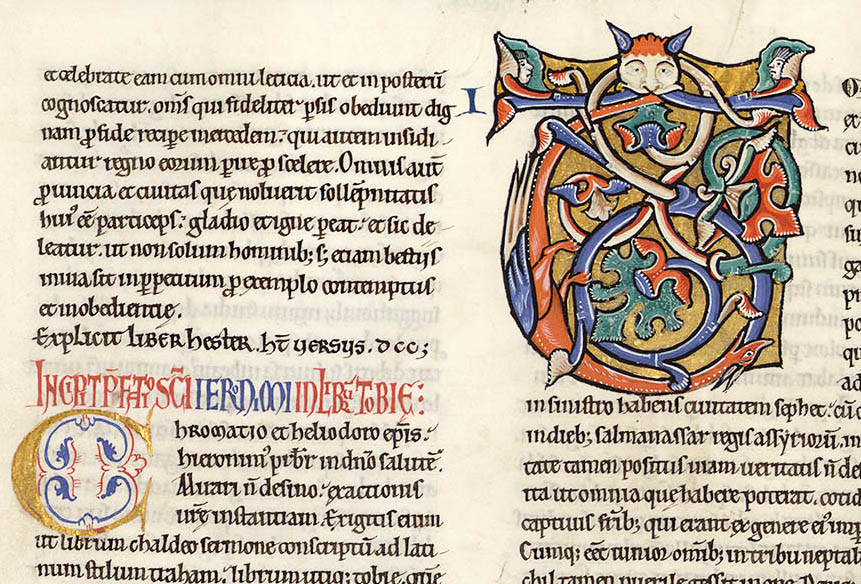 et celebrate eam cum omni leticia. ut et in posterū
cognoscatur. om̄s qui fideliter ꝑsis obediunt dig
nam ꝓ fide recipe mercedem; qui autem insidi
antur regno eorum ꝑire ꝓ scelere. Omnis aut̄
ꝓuincia et ciuitas que noluerit sollēpnitatis
hui' eē particeps; gladio et igne ꝑeat. et sic de
leatur. ut non solum hominib; s; etiam bestiis
inuia sit in ꝑpetuum ꝓ exemplo contemptus
et inobedientie.
Explicit liber hester. ht̄ versus. dcc;
INCIPIT P̄FATIO SCI IERONIMI IN LIBR̄ TOBIE:
CHromatio et heliodoro ep̄is.
hieronim' p̄rbr̄ in dn̄o salutē.
Mirari n̄ desino. exactionis
ur̄e instantiam. Exigitis enim
ut librum chaldeo sermone conscriptū ad lati
num stilum traham. librum utiq; tobie. quē
I
T
in sinistro habens ciuitatem sephet. cū
in dieb; salmanassar regis assyriorū. in
tate tamen positus uiam ueritatis n̄ de
ita ut omnia que habere poterat. cotid
captiuis fr̄ib; qui erant ex genere ei' imp
Cumq; eēt iunior omīb; in tribu neptah
chil tamen puerile gessit in opere